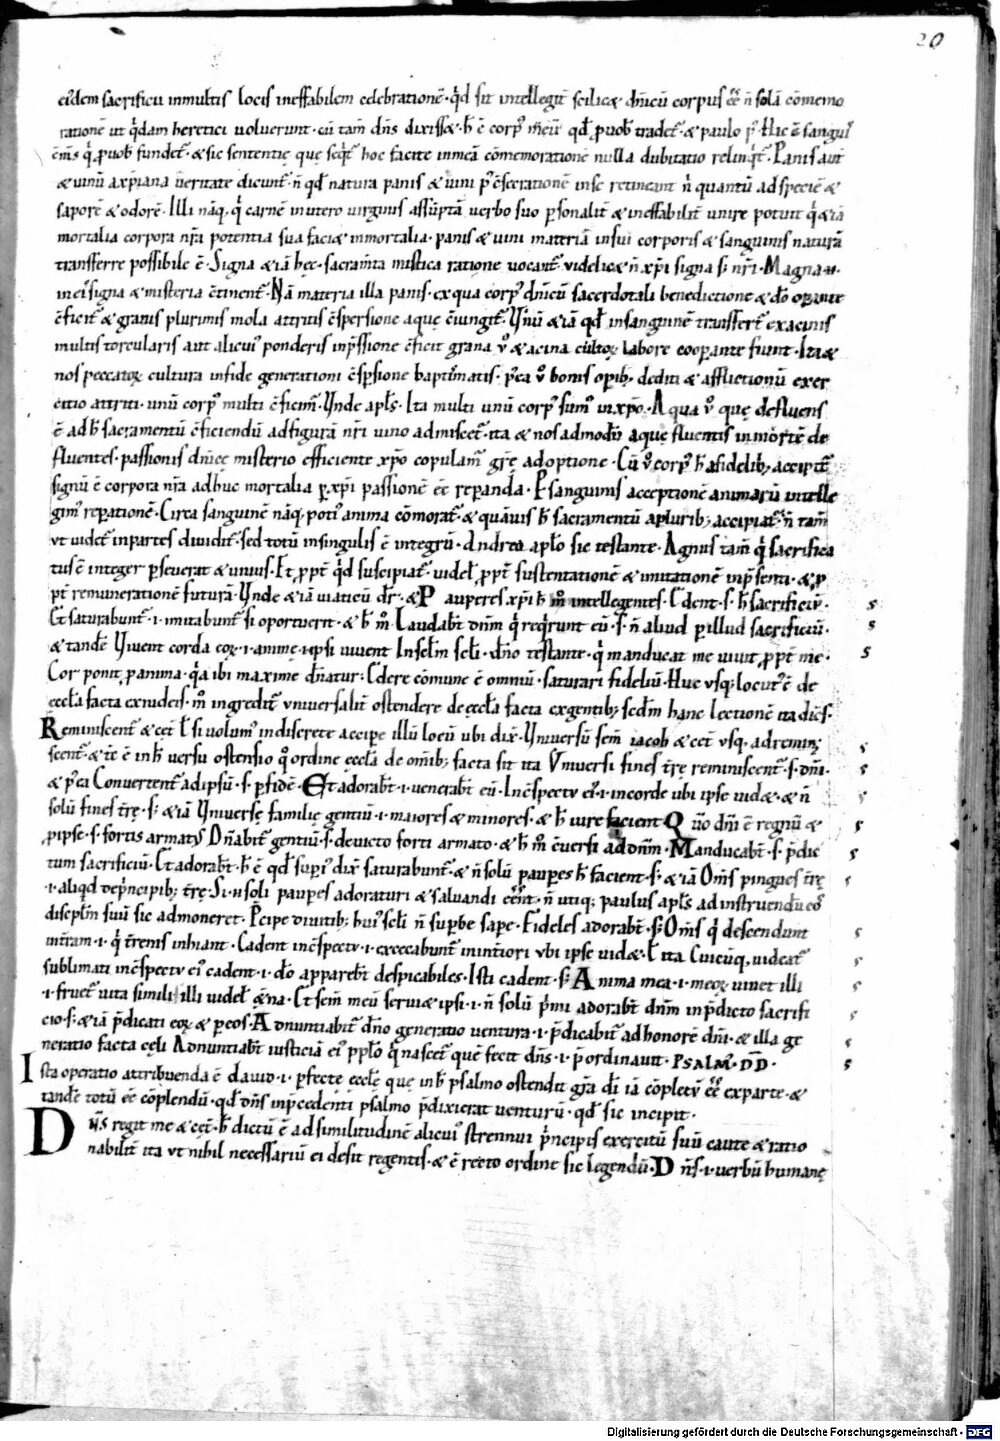 20
eiusdem sacrificii inmultis locis ineffabilem celebrationē · qd̄ sit intellegit̄ scilicæ dn̄icū corpus ēē n̄ solā cōmemo
rationē ut q̇dam heretici uoluerunt · cū tam̄ dn̄s dixissæ · h̄ ē corp᾿ meū qd̄ ꝓ uob᾿ tradet᾿ · & paulo p᾿ · Hic ē sanguis
fundet᾿ · & sic sententię quę seqt᾿ hoc facite inmeā cōmemorationē nulla dubitatio relinqt᾿ · Panis aut̄
& uinū axp̄iana ueritate dicunt᾿ · n̄ qd̄ natura panis & uini p᾿ csecrationē inse retineant n̄ quantū ad speciē &
saporē & odorē · Illi nāq, q̇ carnē inutero uirginis assūptā uerbo suo psonalit̄ & ineffabilit̄ unire potuit q̇ & iā
mortalia corpora nr̄a potentia sua faciæ inmortalia · panis & uini materiā insui corporis & sanguinis naturā
transferre possibile ē · Signa & iā hęc · sacram̄ta mistica ratione uocant᾿ uidelicæ n̄ xp̄i signa s; nr̄i · Magna u·
inei᾿ signa & misteria ctinent᾿ · Nā materia illa panis · ex qua corp᾿ dn̄icū sacerdotali benedictione & dō operante
cficit᾿ & granis plurimis mola attritis cspersione aquę ciungit᾿ · Vinū & iā qd̄ insanguinē transfert᾿ exacinis
multis torcularis aut alicui᾿ ponderis inp̄ssione cficit grana v᾿ & acina cultor labore cooperante fiunt · Ita &
nos peccator cultura infide generationi cspsione baptimatis · p̄ea v᾿ bonis oꝑib; dediti & afflictionū exer
citio attriti · unū corp᾿ multi cficim᾿ · Vnde apl̄s · Ita multi unū corp᾿ sum᾿ inxp̄o · Aqua v᾿ quę defluens
ē ad h̄ sacramentū cficiendū adfigurā nr̄i uino admiscet᾿ · ita & nos admodū aquę fluentis inmortē de
fluentes · passionis dn̄icę misterio efficiente xp̄o copulam᾿ gr̄ę adoptione · Cū v᾿ corp᾿ h̄ afidelib; accipit᾿
signū ē corpora nr̄a adhuc mortalia ꝑ xp̄i passionē ēē reparanda · P sanguinis acceptionē animarū intelle
gim᾿ repationē · Circa sanguinē nāq, poti᾿ anima cōmorat᾿ · & quāuis h̄ sacramentū apluribus accipiat᾿ · n̄ tam̄
vt uidet᾿ inpartes diuidit᾿ · sed totū insingulis ē integrū · Andrea aplo sic testante · Agnus tam̄ q̇ sacrifica
tus ē integer pseuerat & uiuus · Et ꝓpt̄ qd̄ suscipiat᾿ · uidel᾿ ꝓpt̄ sustentationē & imitationē inp̄senti · & ꝓ
pt̄ remunerationē futurā · Vnde & iā uiaticū dr̄ · & Pauperes xp̄i h̄ m᾿ intellegentes · Edent · s · h̄ sacrificiū ·
Et saturabunt᾿ · i · imitabunt᾿ si oportuerit · & h̄ m᾿ · Laudabt̄ dn̄m q̇ reqrunt eū · s · n̄ aliud p illud sacrificiū ·
& tandē Viuent corda eor · i · animę ipsi uiuent Insclm scli · dn̄o testante · q̇ manducat me uiuit ꝓpt̄ me ·
Cor ponit᾿ panima · qa ibi maxime dn̄atur · Edere cōmune ē omniū · saturari fidelium · Huc usq, locut᾿ ē de
eccla facta exiudeis · m᾿ ingredit᾿ vniuersalit̄ ostendere de eccla facta exgentib; sed m̄ hanc lectionē ita dices ·
Reminiscent᾿ & cet᾿ · L᾿ si uolum᾿ indiscrete accipe illū locū ubi dix̄ · Vniuersū sem̄ iacob & cet᾿ vsq, adremin;
scent᾿ · & t̄ ē inh̄ versu ostensio qo ordine ęccla de omib; facta sit ita Vniuersi fines tr̄ę reminiscent᾿ · s · dn̄i ·
& p̄ea Conuertent᾿ adipsū · s · p fidē · Et adorabt̄ · i · venerabt̄ eū · In cspectu ei᾿ · i · incorde ubi ipse uidæ · & n̄
solū fines tr̄ę · s; & iā Vniuersę familię gentiū · i · maiores & minores · & h̄ iure facient Quō dn̄i ē regnū &
ꝓ ipse · s · fortis armat᾿ Dn̄abit᾿ gentiū · s · deuicto forti armato · & h̄ m᾿ cuersi addn̄m · Manducabt̄ · s · p̄dic
tum sacrificiū · Et adorabt̄ · h̄ ē qd̄ supi᾿ dix̄ saturabunt᾿ · & n̄ solū pauperes h̄ facient · s; & iā Om̄s pingues tr̄ę
· i · aliqd̄ dep̄ncipib; tr̄ę · Si · n soli paupes adoraturi & saluandi eēnt · n̄ utiq; paulus apl̄s ad instruendū eos
disciplin̄ suū sic admoneret · P̄cipe diuitib; hui᾿ scli n̄ suꝑbe sapę · Fideles adorabt̄ · s; Om̄s q̇ descendunt
interam · i · q̇ tr̄enis inhiant · Cadent incspectu · i · execcabunt᾿ inintiori vbi ipse uidæ · L᾿ ita Cuicūq, uideat᾿
sublimati incspectu ei᾿ cadent · i · dō apparebt̄ despicabiles · Isti cadent · s; Anima mea · i · meor uiuet illi
· i · fruet᾿ uita simili illi uidel᾿ ęt̄na · Et sem̄ meū seruiæ ipsi · i · n̄ solū p̄mi adorabt̄ dn̄m inp̄dicto sacrifi
cio · s; & iā p̄dicati eor & peos · Adnuntiabit᾿ dn̄o generatio uentura · i · p̄dicabit᾿ adhonorē dn̄i · & illa ge
neratio facta cęli Adnuntiabt̄ iusticiā ei᾿ pplo q̇ nascet᾿ quē fecit dn̄s · i · p̄ordinauit · PSALM᾿ · DD ·
Ista operatio attribuenda ē dauid · i · pfectę eccle quę inh̄ psalmo ostendit gr̄a di iā cōpletu ēē exparte · &
tandē totū ēē cōplendū · qd̄ dn̄s inp̄cedenti psalmo p̄dixerat venturū · qd̄ sic incipit ·
Dn̄s regit me & cet᾿ · h̄ dictū ē adsimilitudinē alicui᾿ strennui p̄ncipis exercitū suū caute & ratio
nabilit̄ ita vt nihil necessariū ei desit regentis · & ē recto ordine sic legendū · Dn̄s · i · verbū humanę
Digitalisierung gefördert durch die Deutsche Forschungsgemeinschaft - DFG